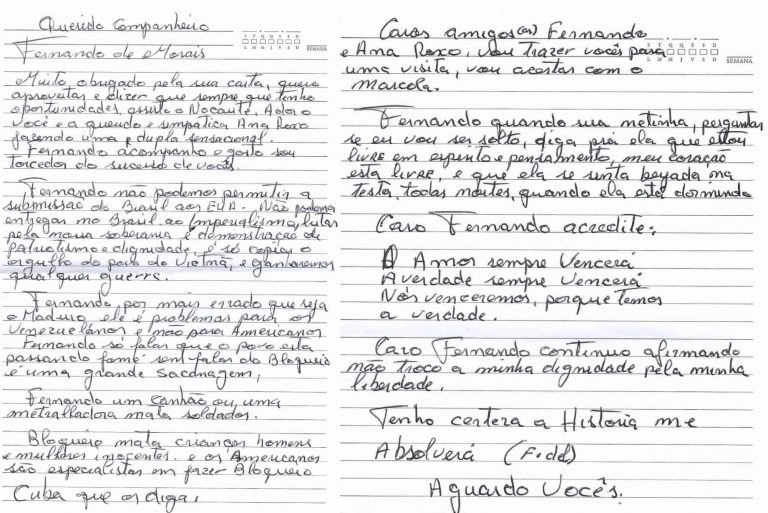 Querido Companheiro
Fernando de Morais
Muito obrigado pela sua carta, quero
aproveitar e dizer que sempre que tenho
oportunidades, assisto o Nocaute. Adoro
você e a querida e simpatica Ana Roxo
fazendo uma dupla sensacional.
Fernando acompanho e gosto sou
torcedor do sucesso de vocês.
Fernando não podemos permitir a
submissão do Brasil aos EUA. Não podemos
entregar no Brasil ao Imperialismo, lutar
pela nossa soberania é demonstração de
patriotismo e dignidade, é só copiar o
orgulho do povo do Vietmã, e ganharemos
qualquer guerra.
Fernando, por mais errado que seja
o Maduro ele é problemas para os
Venezuelanos e não para Americanos
Fernando só falar que o povo esta
passando fome sem falar do Bloqueio
é uma grande sacanagem,
Fernando um canhão ou, uma
metralhadora mata soldados.
Bloqueio mata crianças homens
e mulheres inocentes. e os Americanos
são especialistas em fazer Bloqueio
Cuba que os diga,
S T Q Q S S D
L M M J V S D
SEMANA
Caros amigos(as) Fernando
e Ana Roxo, vou trazer vocês para
uma visita, vou acertar com o
Marcola.
Fernando quando sua netinha, perguntar
se eu vou ser solto, diga prá ela que estou
livre em espirito e pensamento, meu coração
esta livre, e que ela se sinta beijada na
testa, todas noites, quando ela está dormindo
Caro Fernando acredite:
O Amor sempre Vencerá
A verdade sempre Vencerá
Nós venceremos, porque temos
a verdade.
Caro Fernando continuo afirmando
não troco a minha dignidade pela minha
liberdade.
Tenho certeza a Historia me
Absolverá (Fidel)
Aguardo Vocês.
S T Q Q S S D
L M M J V S D
SEMANA